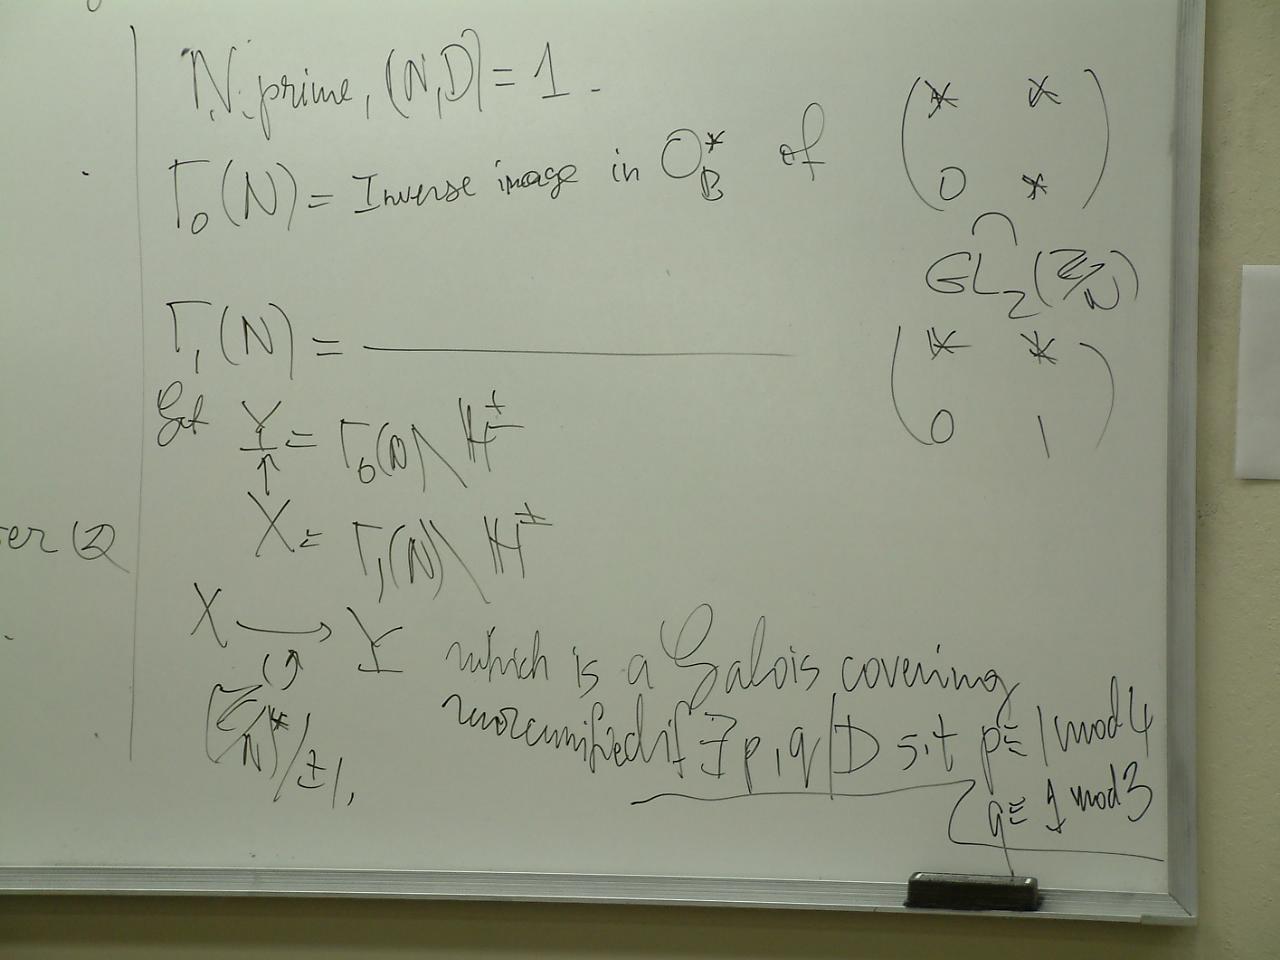 N: prime, (N,D)=1.
Γ₀(N) = Inverse image in O_B^* of (* * / 0 *)
∩
GL₂(Z/N)
Γ₁(N) = ———————— (* * / 0 1)
Get Y = Γ₀(N)\H^±
↑
X = Γ₁(N)\H^±
X → Y which is a Galois covering
(Z/N)^*/±1, unramified if ∃ p,q|D s.t p≡1 mod 4
q≡1 mod 3
er ②